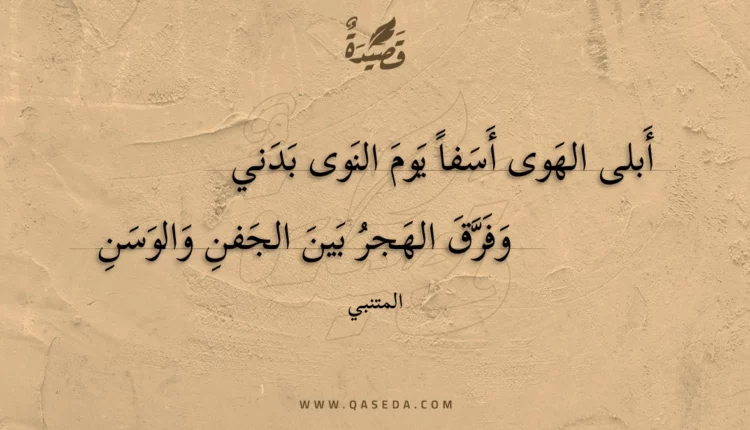 قَصِيْدَةٌ
أَبلى الهَوى أَسَفاً يَومَ النَوى بَدَني
وَفَرَّقَ الهَجرُ بَينَ الجَفنِ وَالوَسَنِ
المتنبي
WWW.QASEDA.COM